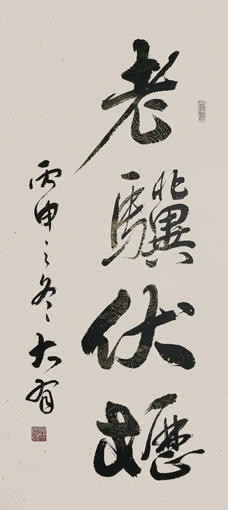 老驥伏櫪
丙申之冬大有